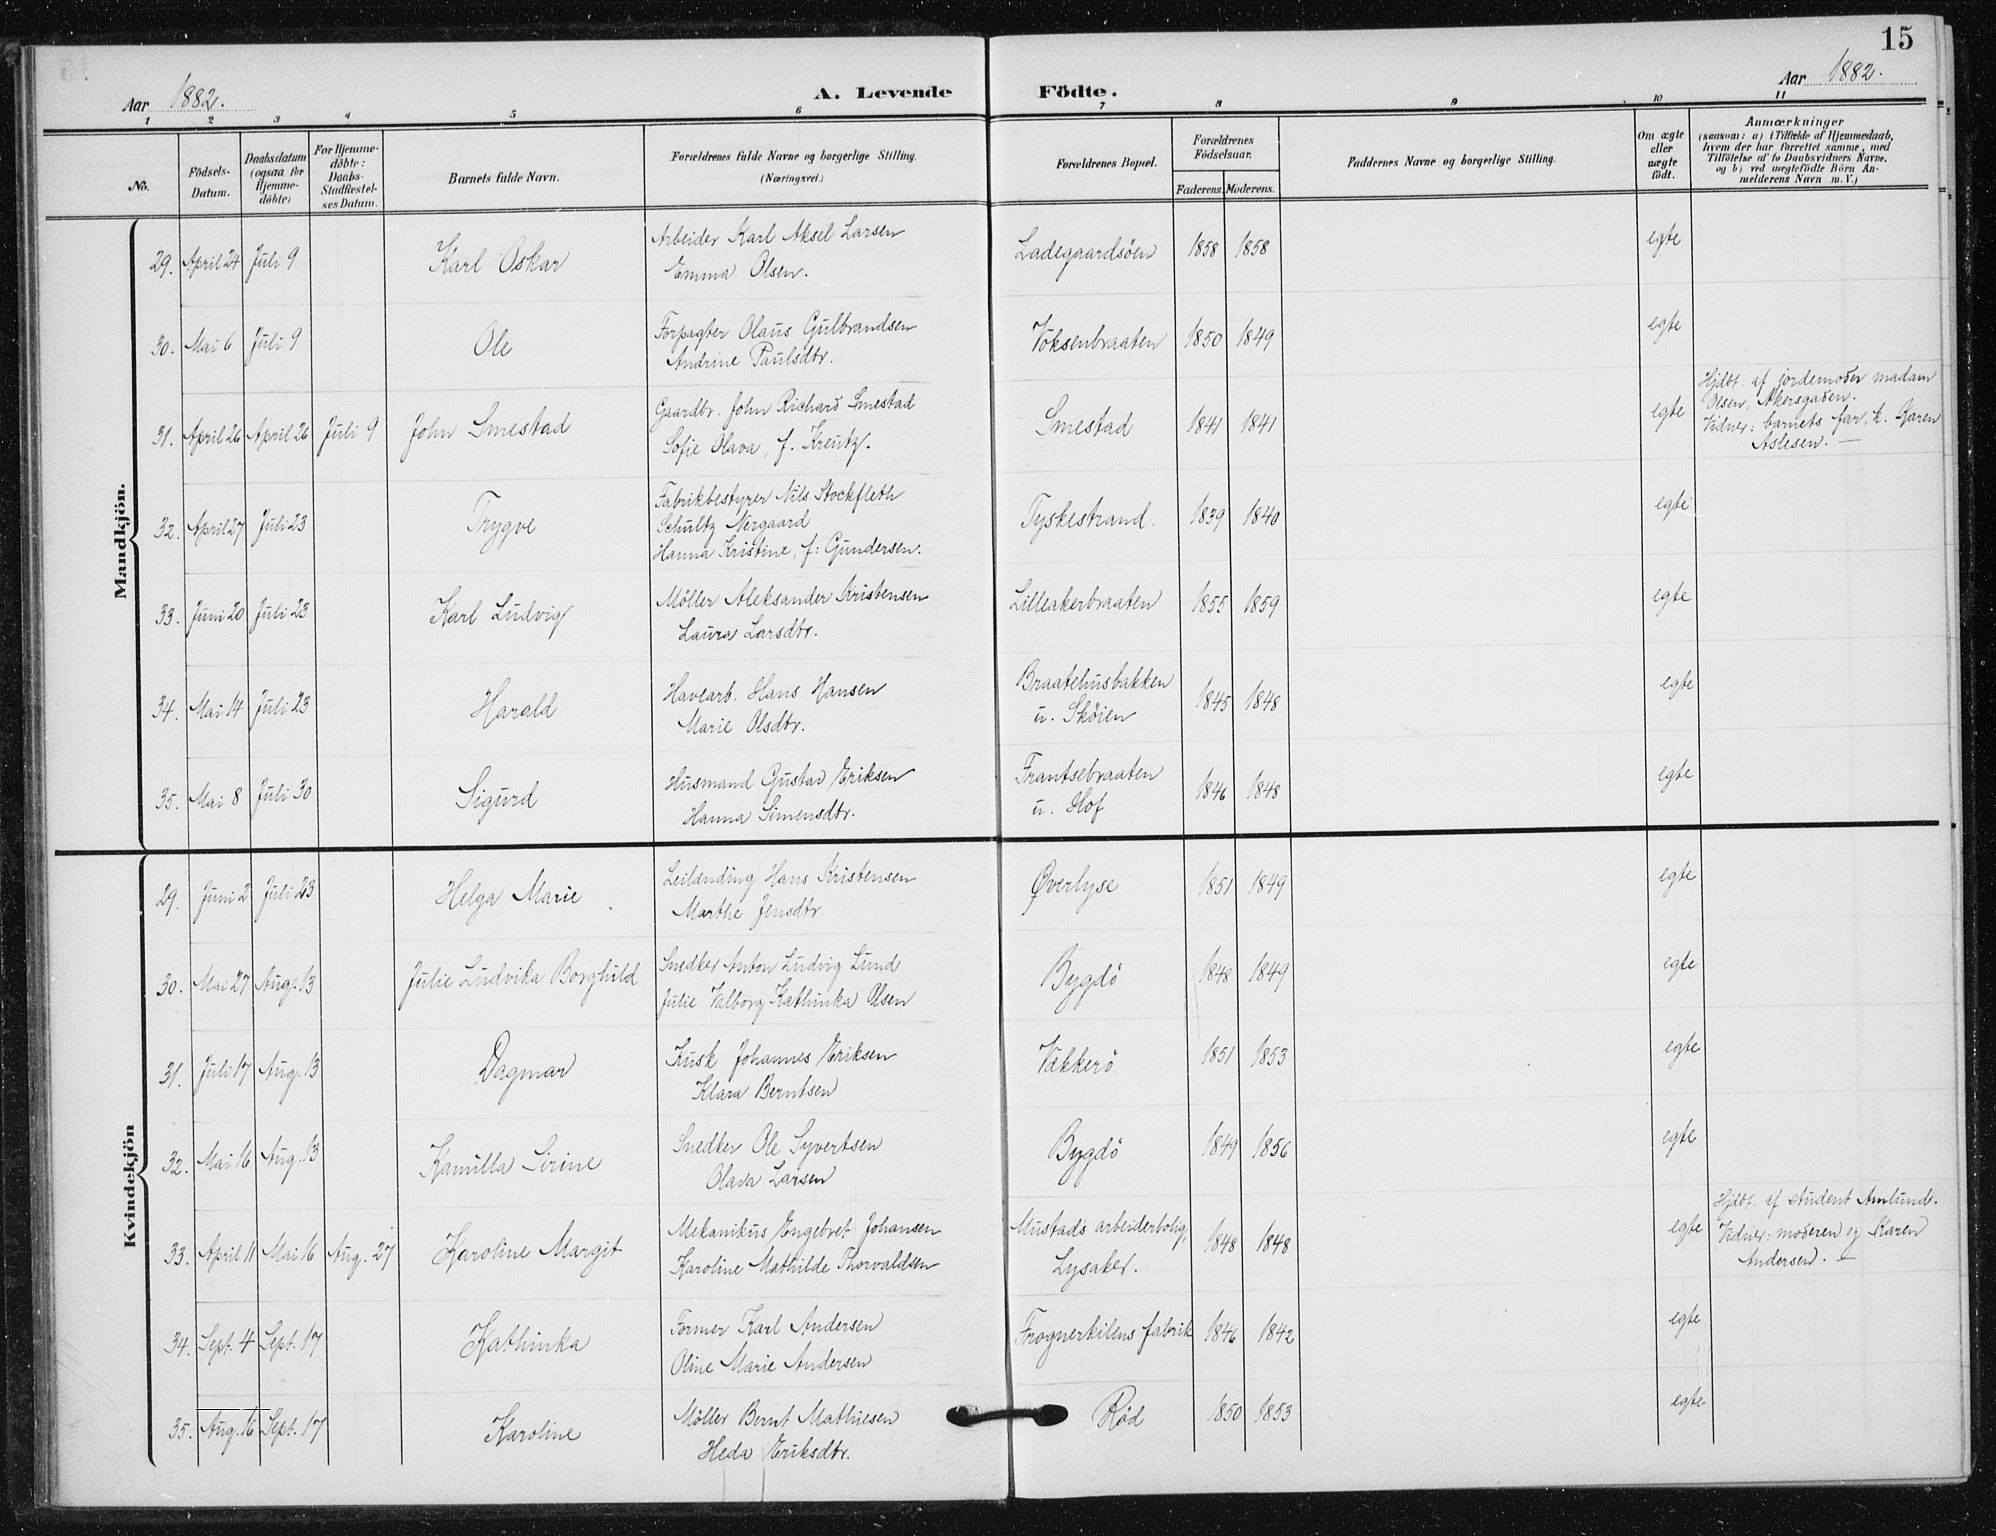 15
Aar 1882. A. Levende Födte. Aar 1882.
1 2 3 4 5 6 7 8 9 10 11
No.
Födsels-
Datum.
Daabsdatum
(ogsaa for
Hjemme-
döbte)
For Hjemme-
döbte:
Daabs-
Stadfæstel-
ses Datum.
Barnets fulde Navn.
Forældrenes fulde Navne og borgerlige Stilling.
(Næringsvei.)
Forældrenes Bopæl.
Forældrenes
Födselsaar.
Faderens. Moderens.
Faddernes Navne og borgerlige Stilling.
Om ægte
eller
uægte
födt.
Anmærkninger
(saasom: a) i Tilfælde af Hjemmedaab,
hvem der har forrettet samme, med
Tilföielse af to Daabsvidners Navne,
og b) ved uægtefödte Börn An-
melderens Navn m. V.)
Mandkjön.
29. April 24 Juli 9 Karl Oskar Arbeider Karl Aksel Larsen Ladegaardsöen 1858 1858 egte
Emma Olsen.
30. Mai 6 Juli 9 Ole Forpagter Olaus Gulbrandsen Voksenbraaten 1850 1849 egte
Andrine Paulsdtr.
31. April 26 April 26 Juli 9 John Smestad Gaardbr. John Richard Smestad Smestad 1841 1841 egte
Sofie Olava, f. Kreutz.
Hjdbt. af jordemoder madam
Olsen, Akersgaden.
Vidner: barnets far, k. Karen
Aslesen. —
32. April 27 Juli 23 Trygve Fabrikbestyrer Nils Stockfleth Tyskestrand. 1839 1840 egte
Schultz Nergaard
Hanna Kristine, f: Gundersen.
33. Juni 20 Juli 23 Karl Ludvig Möller Aleksander Kristensen Lilleakerbraaten 1855 1859 egte
Laura Larsdtr.
34. Mai 14 Juli 23 Harald Havearb. Hans Hansen Braatehusbakken 1845 1848 egte
Marie Olsdtr. u. Sköien
35. Mai 8 Juli 30 Sigurd Husmand Gustav Eriksen Frantsebraaten 1846 1848 egte
Hanna Simensdtr. u. Hof
Kvindekjön
29. Juni 2 Juli 23 Helga Marie Leilending Hans Kristensen Øverlyse 1851 1849 egte
Marthe Jensdtr.
30. Mai 27 Aug. 13 Julie Ludvika Borghild Snedker Anton Ludvig Lund Bygdö 1848 1849 egte
Julie Valborg Kathinka Olsen
31. Juli 17 Aug. 13 Dagmar Kusk Johannes Eriksen Vækkerö 1851 1853 egte
Klara Berntsen
32. Mai 16 Aug. 13 Kamilla Sirine Snedker Ole Syvertsen Bygdö 1849 1856 egte
Olava Larsen
33. April 11 Mai 16 Aug. 27 Karoline Margit Mekanikus Engebret Johansen Mustads arbeiderbolig, 1848 1848 egte
Karoline Mathilde Thorvaldsen Lysaker.
Hjdbt. af student Amlund.
Vidner: moderen og Karen
Andersen. —
34. Sept. 4 Sept. 17 Kathinka Former Karl Andersen Frognerkilens fabrik 1846 1842 egte
Oline Marie Andersen
35. Aug. 16 Sept. 17 Karoline Möller Bernt Mathiesen Röd 1850 1853 egte
Heda Eriksdtr.